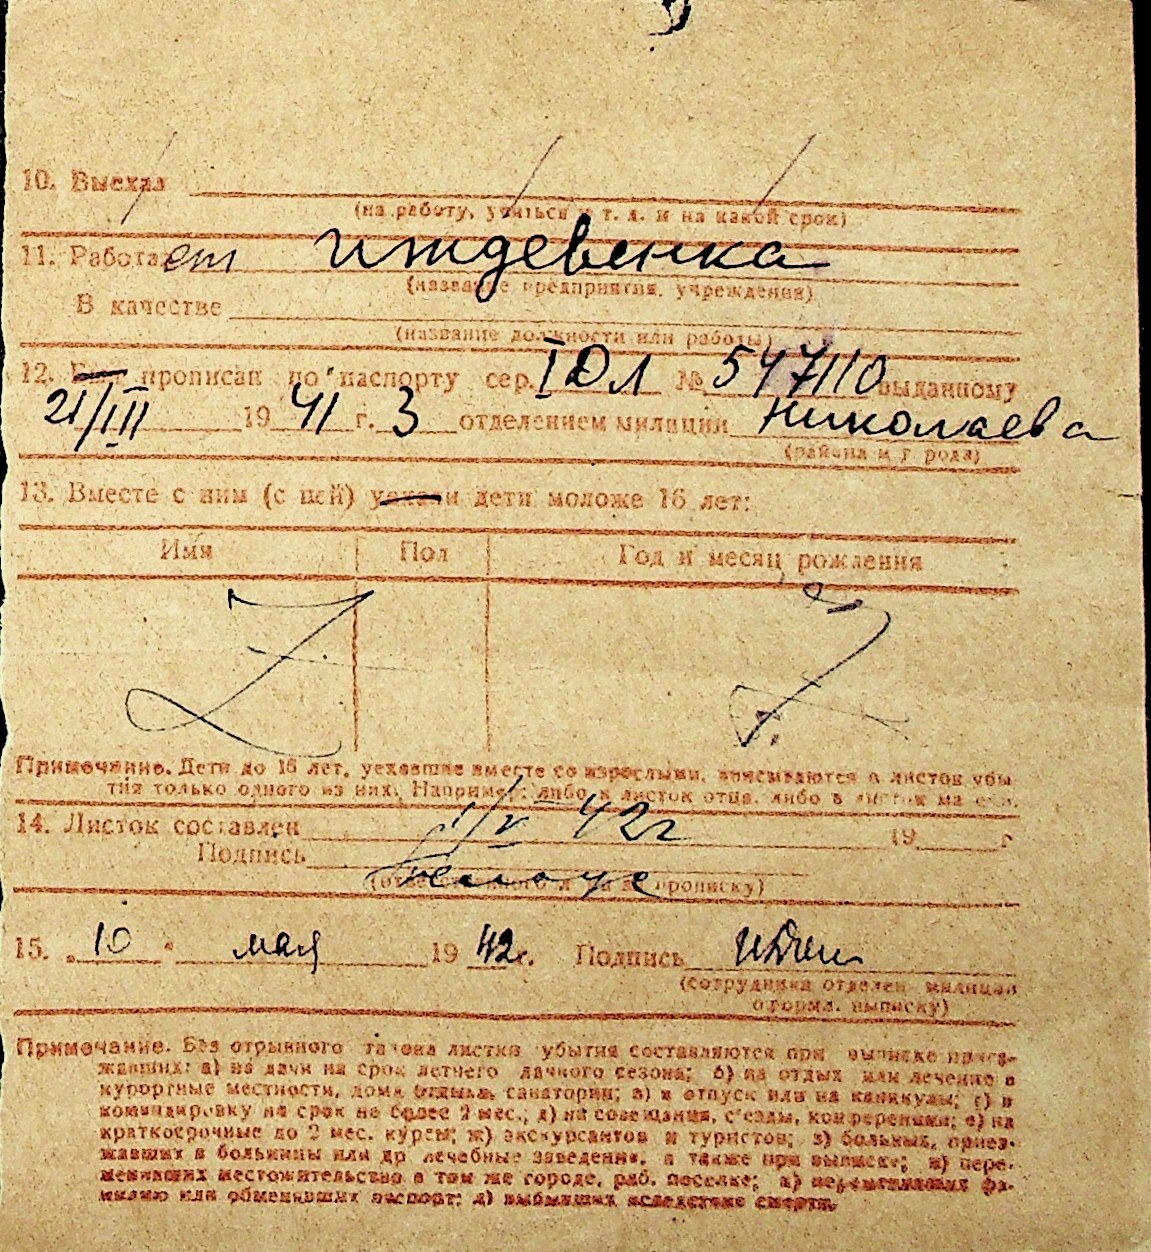 10. Выехал
(на работу, учиться и т. д. и на какой срок)
11. Работает иждевенка
(название предприятия, учреждения)
В качестве
(название должности или работы)
12. Был прописан по паспорту сер. I ЮЛ № 547110 выданному
21/III 1941 г. 3 отделением милиции Николаева
(района и города)
13. Вместе с ним (с ней) уехали дети моложе 16 лет:
Имя Пол Год и месяц рождения
Примечание. Дети до 16 лет, уехавшие вместе со взрослыми, вписываются в листок убы
тия только одного из них. Например: либо в листок отца, либо в листок матери.
14. Листок составлен 1/V 42г 19 г
Подпись
(ответственного за прописку)
15. „10" мая 1942г. Подпись
(сотрудника отделен. милиции
оформл. выписку)
Примечание. Без отрывного талона листки убытия составляются при выписке приез-
жавших: а) на дачи на срок летнего дачного сезона; б) на отдых или лечение в
курортные местности, дома отдыха, санатории; в) в отпуск или на каникулы; г) в
командировку на срок не более 2 мес.; д) на совещания, съезды, конференции; е) на
краткосрочные до 2 мес. курсы; ж) экскурсантов и туристов; з) больных, приез-
жавших в больницы или др лечебные заведения, а также при выписке; и) пере-
менивших местожительство в том же городе, раб. поселке; к) переменивших фа-
милию или обменивших паспорт; л) выбывших вследствие смерти.